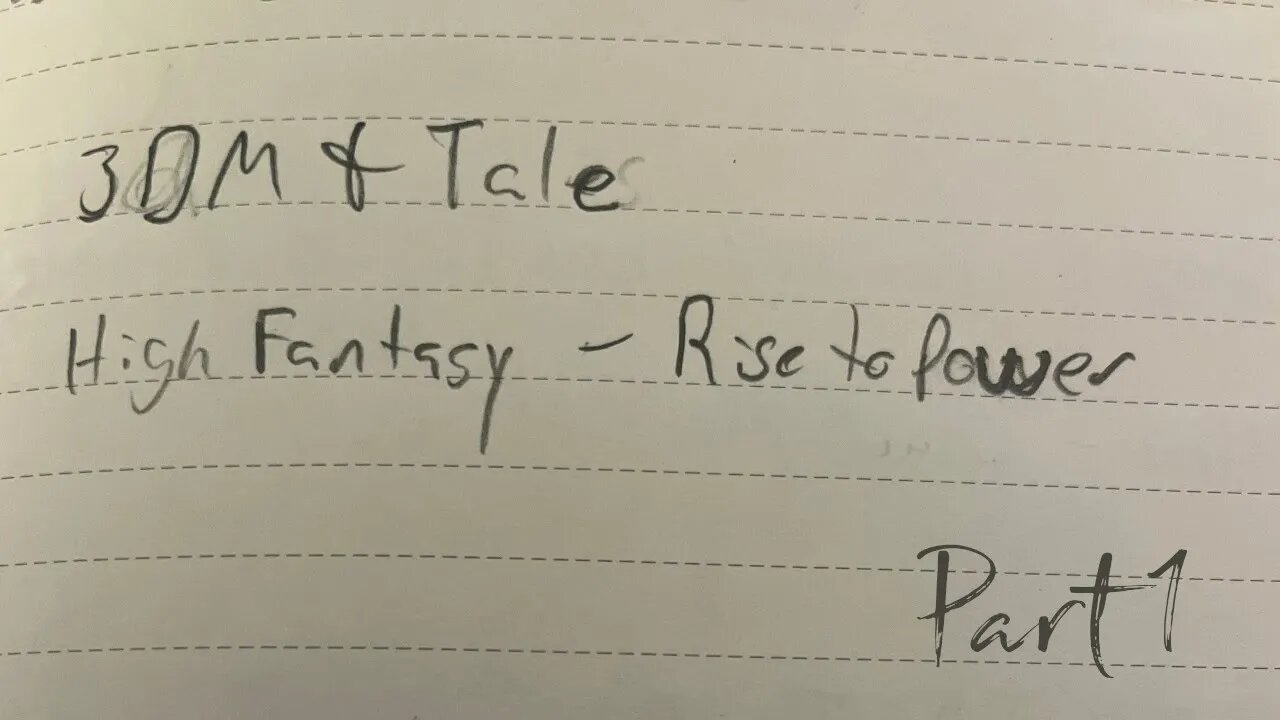 3DM & Tale
High Fantasy - Rise to Power
Part 1